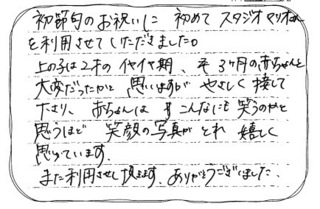 初節句のお祝いに 初めて スタジオマリオさん
を利用させていただきました。
上の子は2才のイヤイヤ期、 3ヶ月の赤ちゃんと
大変だったかと 思いますが やさしく 接して
下さり、赤ちゃんは こんなにも 笑うのかと
思うほど 笑顔の写真が とれ 嬉しく
思っています。
また利用させて頂きます。ありがとうございました。